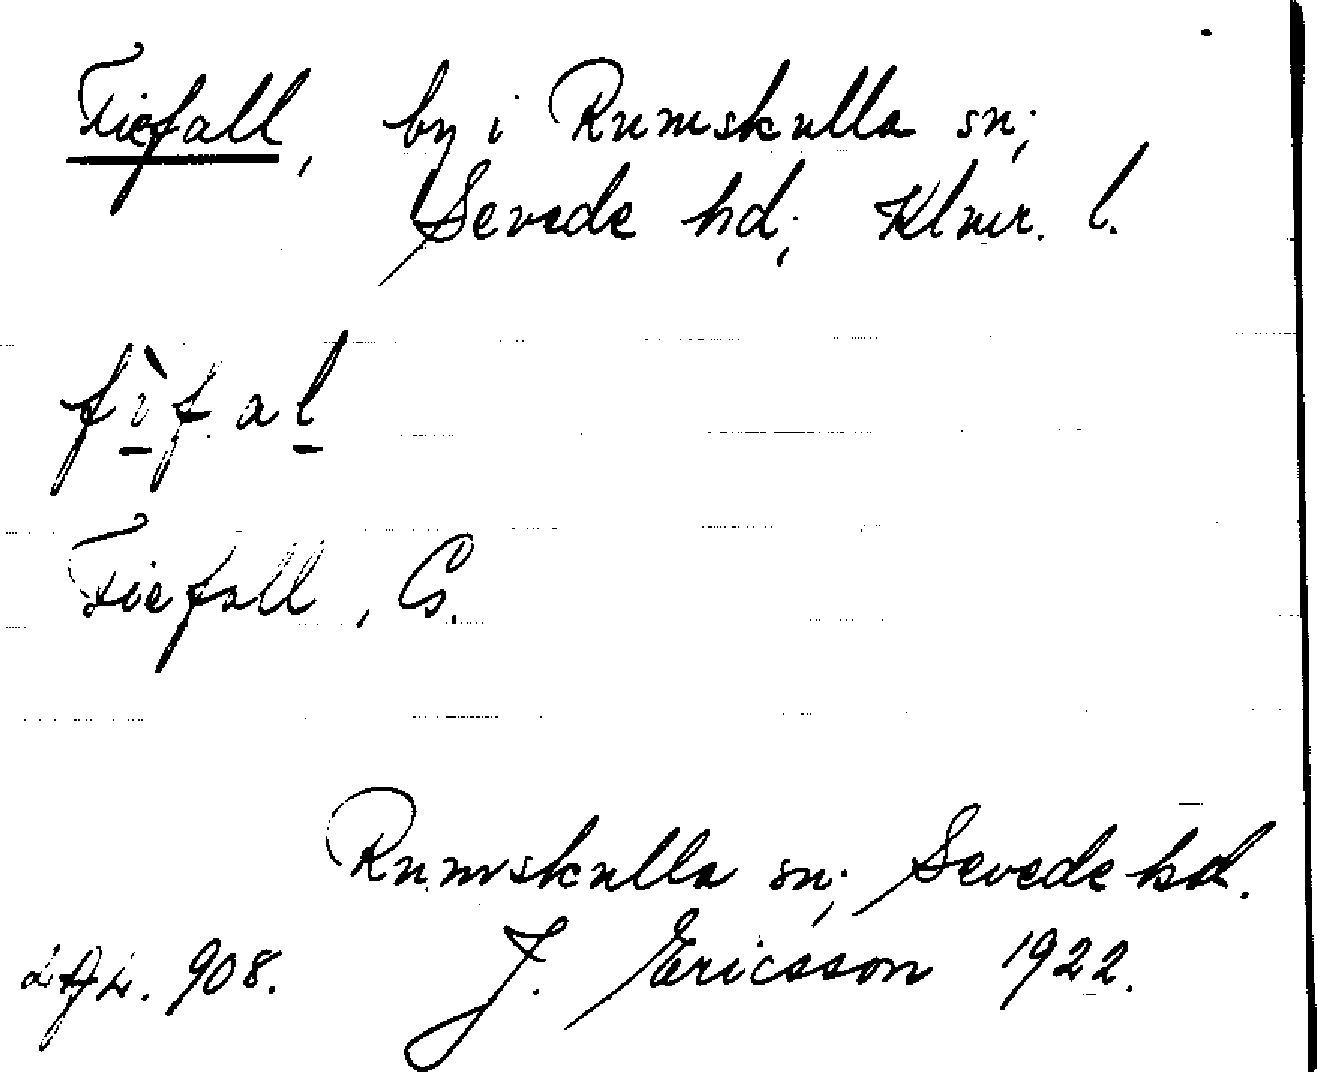 Fiefall, by i Rumskulla sn;
Sevede hd; Klmr. l.
fı̀fal
Fiefall, G.
Rumskulla sn; Sevede hd.
908. J. Ericsson 1922.